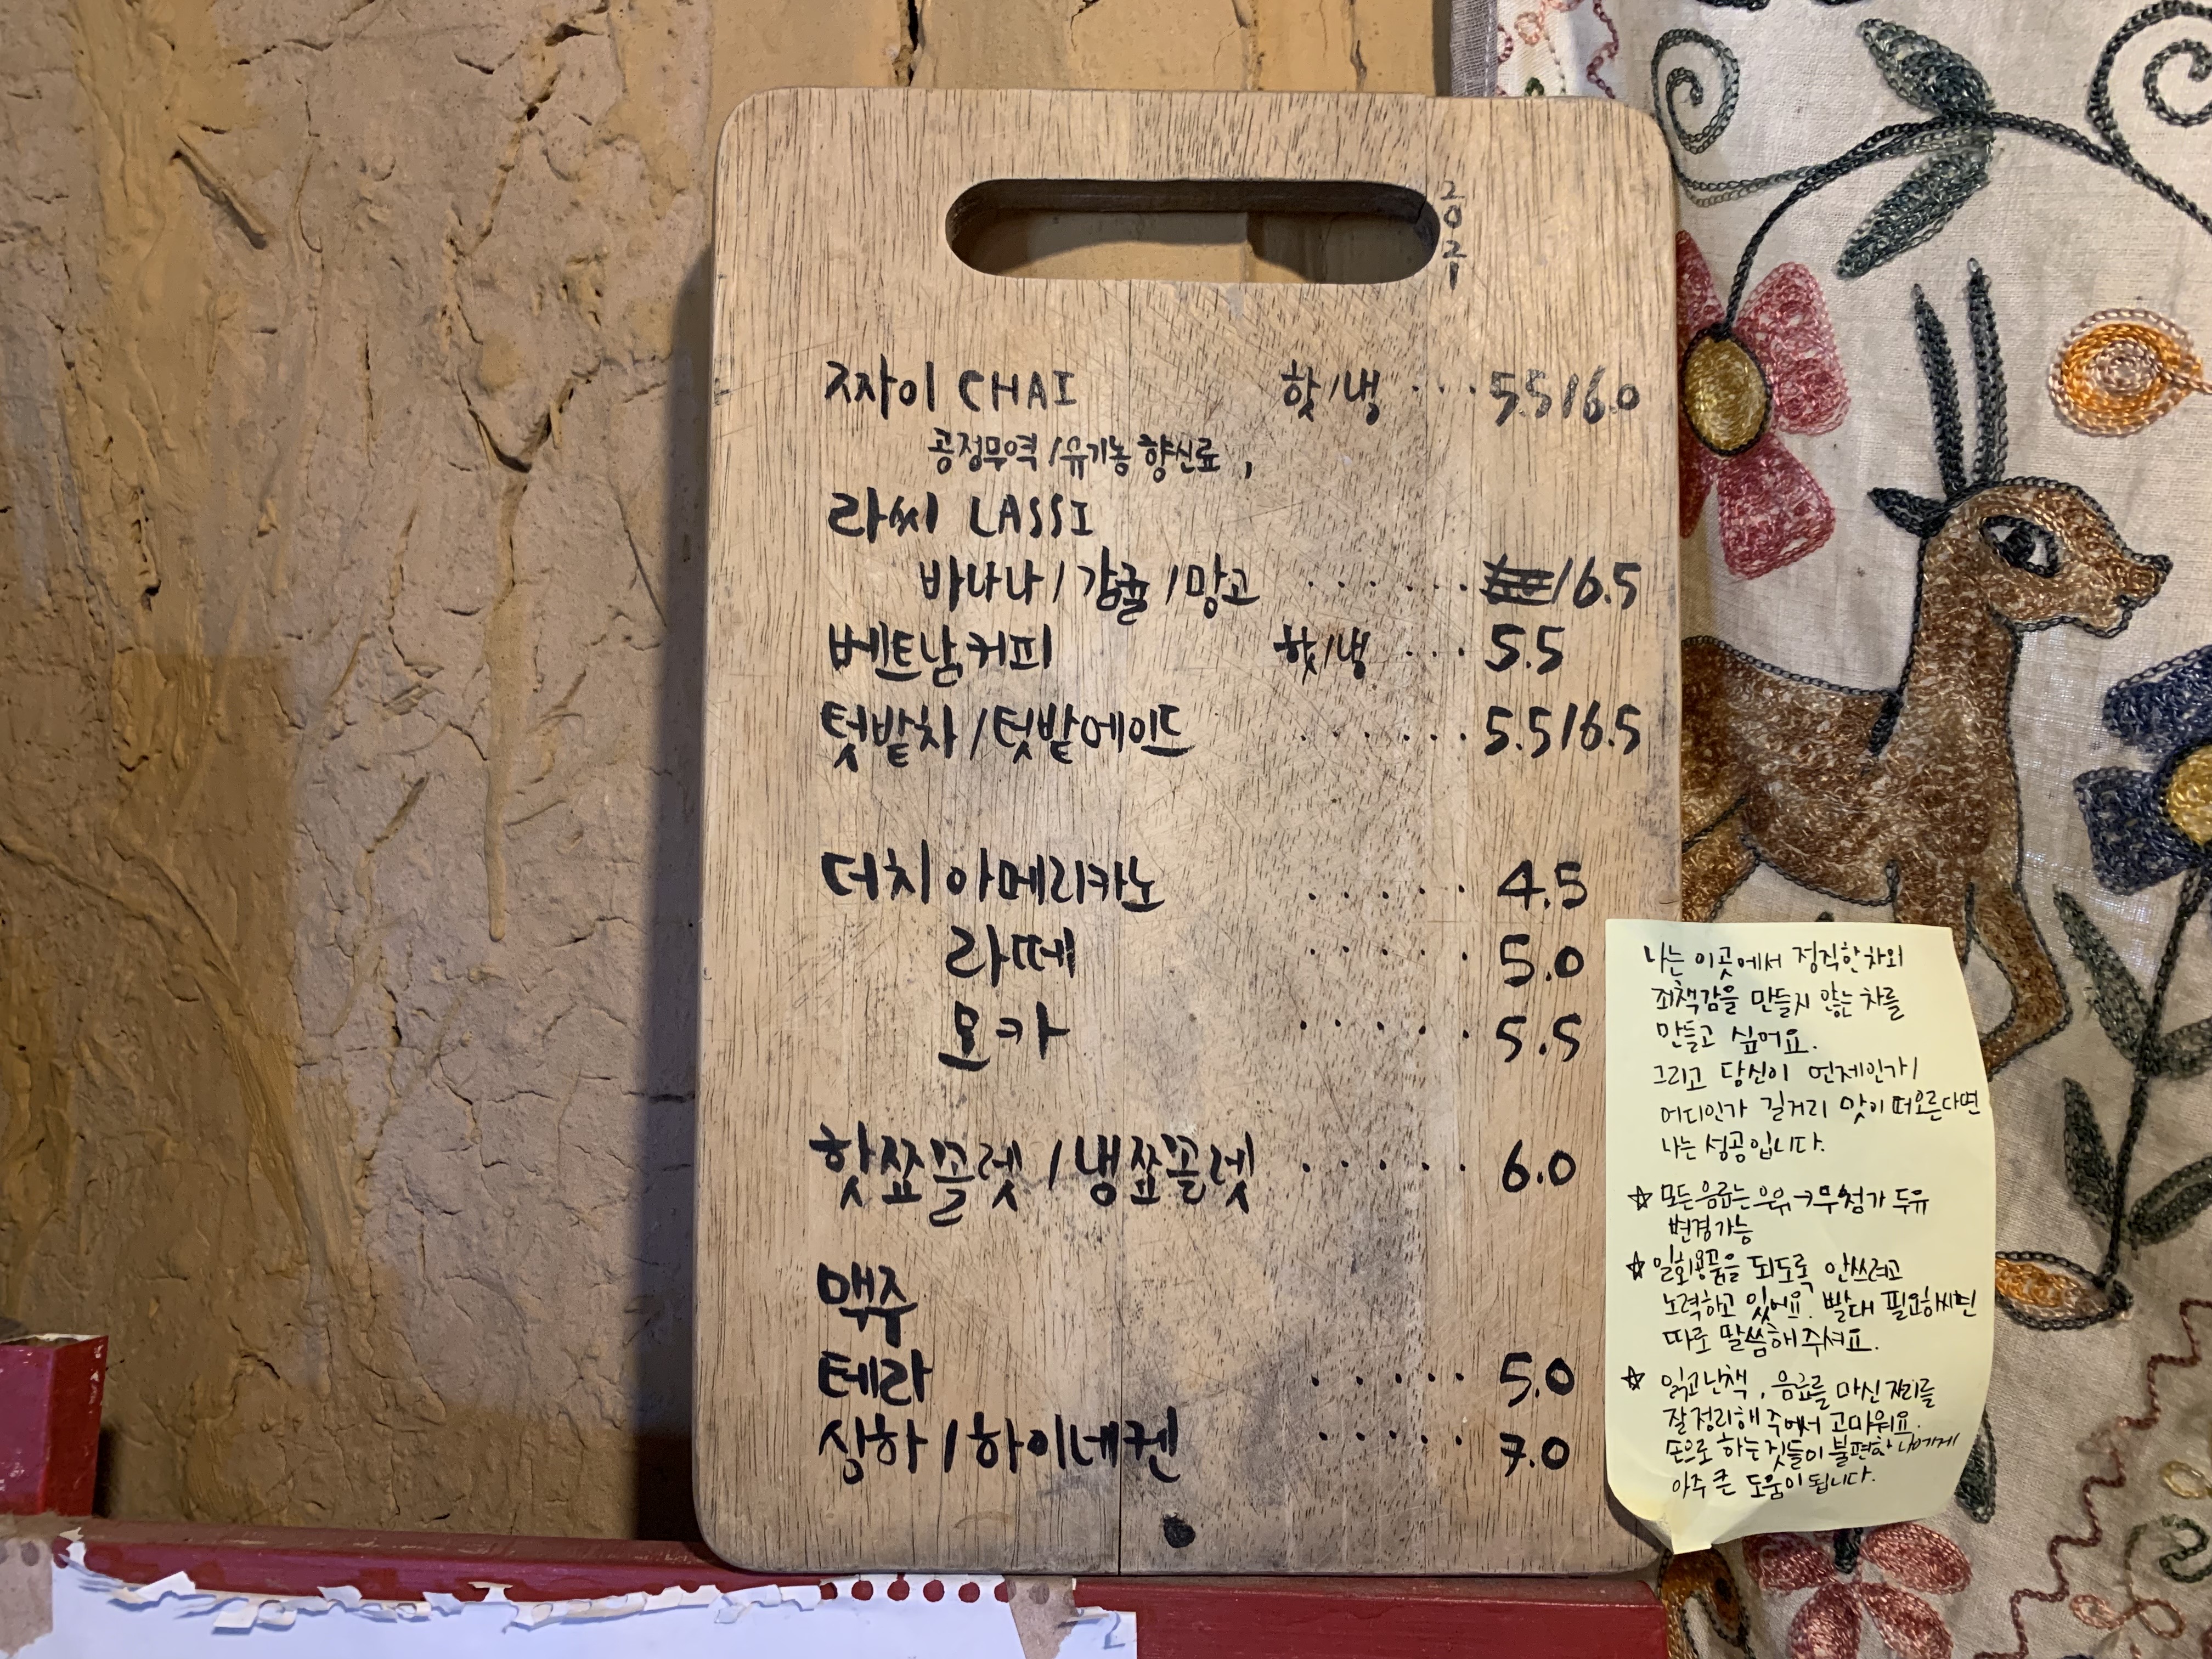 2021
짜이 CHAI 핫/냉 ... 5.5/6.0
공정무역/유기농 향신료,
라씨 LASSI
바나나/감귤/망고 ...... /6.5
베트남커피 핫/냉 ... 5.5
텃밭차/텃밭에이드 ...... 5.5/6.5
더치 아메리카노 ..... 4.5
라떼 ..... 5.0
모카 ..... 5.5
핫쪼꼴렛/냉쪼꼴렛 ..... 6.0
맥주
테라 ..... 5.0
상하/하이네켄 ..... 7.0
나는 이곳에서 정직한 차와
죄책감을 만들지 않는 차를
만들고 싶어요.
그리고 당신이 언제인가/
어디인가 길거리 맛이 떠오른다면
나는 성공입니다.
☆ 모든음료는 우유→무첨가 두유
변경가능
☆ 일회용품을 되도록 안쓰려고
노력하고 있어요. 빨대 필요하시면
따로 말씀해 주셔요.
☆ 읽고난책, 음료를 마신 자리를
잘 정리해 주어서 고마워요.
손으로 하는 것들이 불편한 나에게
아주 큰 도움이 됩니다.